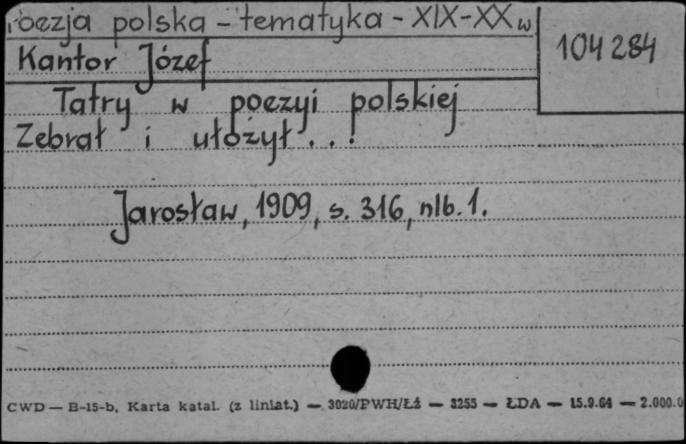 Poezja polska - tematyka - XIX-XX w
104 284
Kantor Józef
Tatry w poezyi polskiej
Zebrał i ułożył...!
Jarosław, 1909, s. 316, nlb. 1.
CWD — B-15-b. Karta katal. (z liniat.) — 3020/PWH/Łź — 3255 — ŁDA — 15.9.64 — 2.000.0